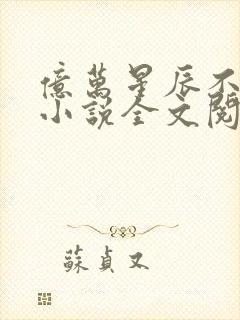 億萬星辰不
小說全文閱
蘇貞又